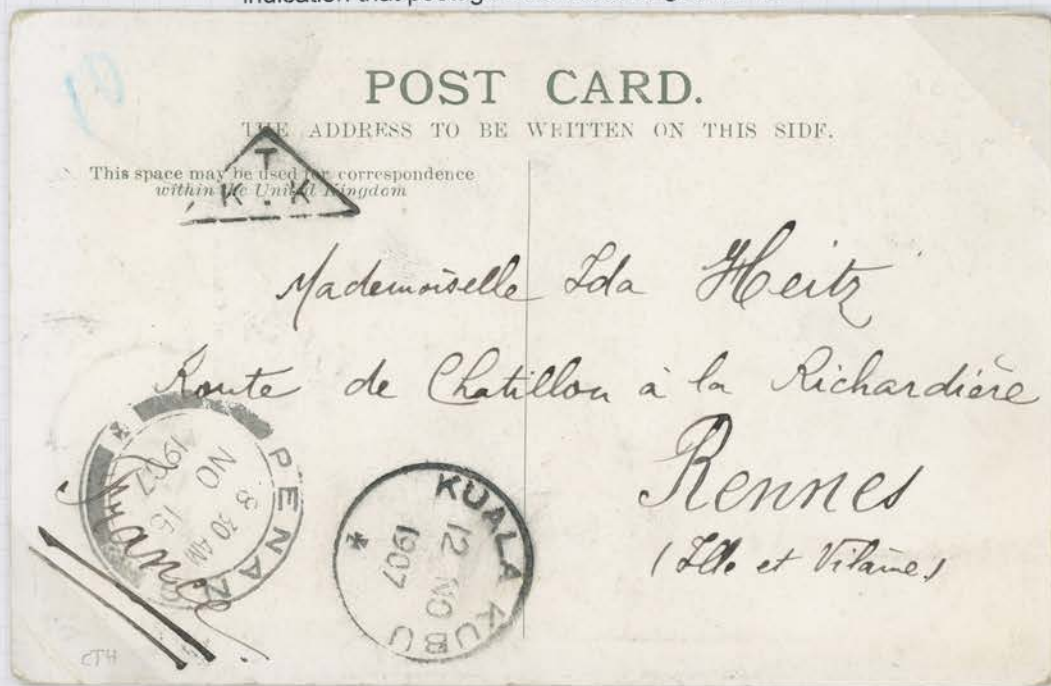 POST CARD.
THE ADDRESS TO BE WRITTEN ON THIS SIDE.
This space may be used for correspondence
within the United Kingdom
T
K. K
Mademoiselle Ida Heitz
Route de Chatillon à la Richardière
Rennes
(Ille et Vilaine)
France
PENANG
8 30 AM
NO 15
1907
KUALA KUBU
12 NO
1907
CTH